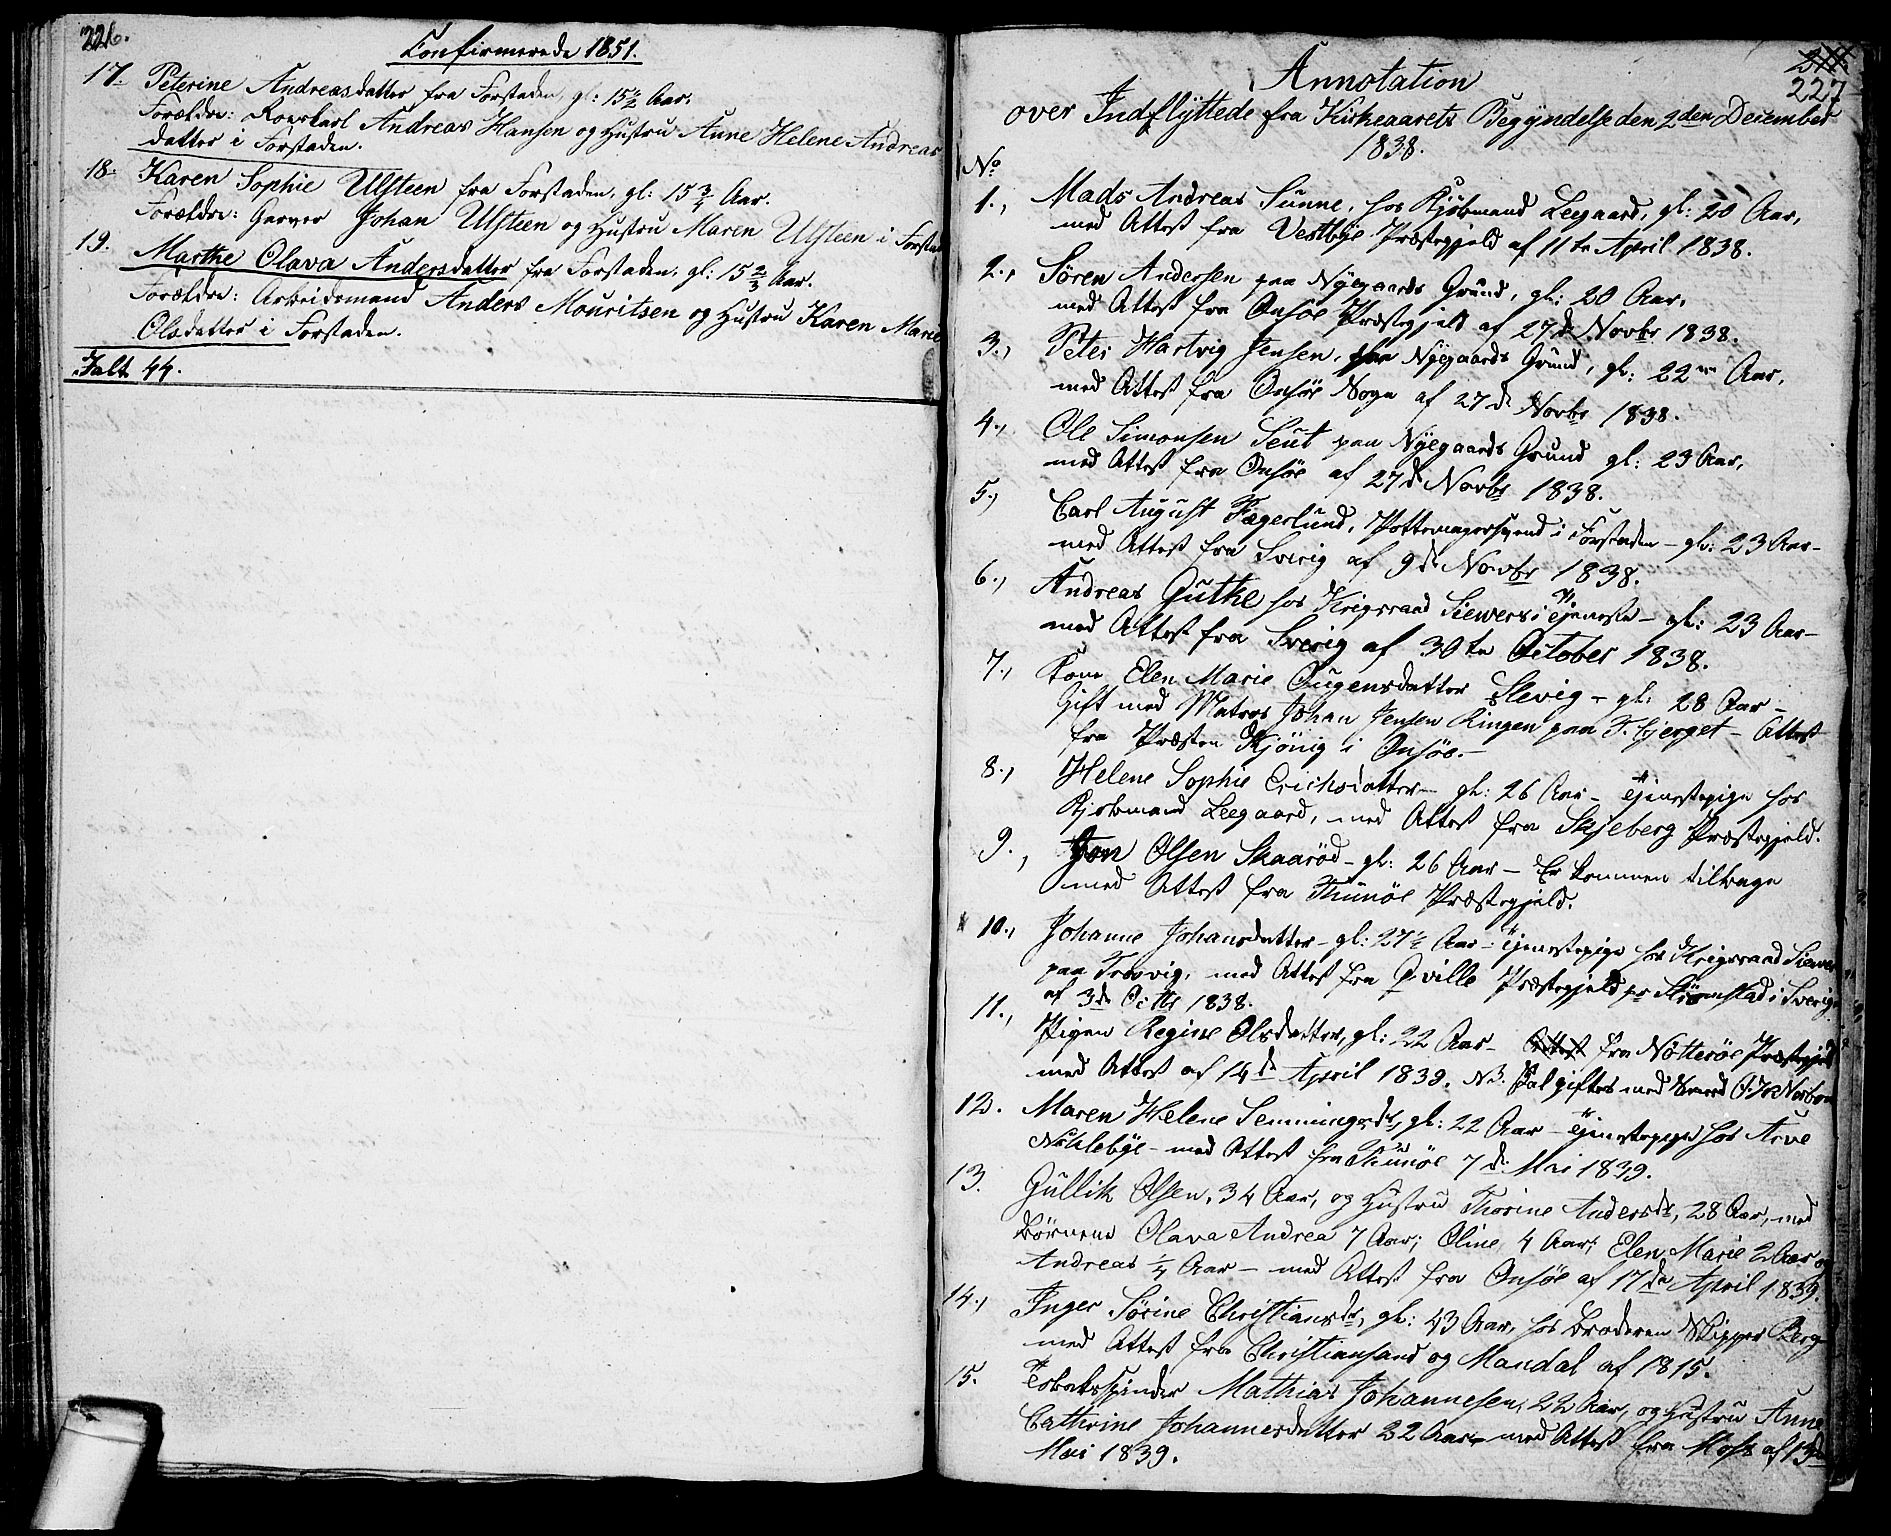 226.
Confirmerede 1851.
17. Peterine Andreasdatter fra Forstaden, gl: 15½ Aar.
Forældre: Roerkarl Andreas Hansen og Hustru Anne Helene Andreas
datter i Forstaden.
18. Karen Sophie Ulsteen fra Forstaden, gl: 15¾ Aar.
Forældre: Garver Johan Ulsteen og Hustru Maren Ulsteen i Forstad
19. Marthe Olava Andersdatter fra Forstaden, gl: 15⅔ Aar.
Forældre: Arbeidsmand Anders Mouritsen og Hustru Karen Marie
Olsdatter i Forstaden.
Ialt 44.
227
Annotation
over Indflyttede fra Kirkeaarets Begyndelse den 2den December
1838.
No
1., Mads Andreas Sunne, hos Kjøbmand Leegaard, gl: 20 Aar,
med Attest fra Vestbye Præstegjeld af 11te April 1838.
2., Sören Andersen paa Nyegaards Grund, gl: 20 Aar,
med Attest fra Onsöe Præstegjeld af 27de Novbr 1838.
3., Peter Hartvig Jensen, paa Nyegaards Grund, gl: 22 Aar,
med Attest fra Onsöe Sogn af 27de Novbr 1838.
4., Ole Simonsen Seut paa Nyegaards Grund gl: 23 Aar,
med Attest fra Onsöe af 27de Novbr 1838.
5., Carl August Fagerlund, Pottemagersvend i Forstaden – gl: 23 Aar –
med Attest fra Sverig af 9de Novbr 1838.
6., Andreas Gutke hos Krigsraad Siewers i Tjeneste – gl: 23 Aar –
med Attest fra Sverig af 30te October 1838.
7., Kone Elen Marie Ougensdatter Slevig – gl: 28 Aar –
Gift med Matros Johan Jensen Ringen paa F. bjerget – Attest
fra Præsten Kjönig i Onsöe. –
8., Helene Sophie Erichsdatter – gl: 26 Aar – Tjenestepige hos
Kjøbmand Leegaard, med Attest fra Skjeberg Præstegjeld.
9., Jon Olsen Skaaröd – gl: 26 Aar – Er kommen tilbage
med Attest fra Thunöe Præstegjeld.
10., Johanne Johansdatter – gl: 27½ Aar – Tjenestepige hos Krigsraad Siewers
paa Trosvig, med Attest fra Qville Præstegjeld pr Strömstad i Sverig
af 3de Octbr 1838.
11., Pigen Regine Olsdatter, gl: 22 Aar – Attest fra Nötteröe Præstegjeld
med Attest af 14de April 1839. NB. Skal giftes med
12. Maren Helene Semmingsdr, gl: 22 Aar – Tjenestepige hos Arve
Nuklebye – med Attest fra Thunöe 7de Mai 1839.
13. Gullik Olsen, 34 Aar, og Hustru Thorine Andersdr, 28 Aar, med
Börnene Olava Andrea 7 Aar; Oline 4 Aar; Elen Marie 2 Aar og
Andreas ¼ Aar – med Attest fra Onsöe af 17de April 1839.
14., Inger Sörine Christiansdr, gl: 43 Aar, hos Broderen Skipper Berg
med Attest fra Christiansand og Mandal af 1815.
15. Tobaksspinder Mathias Johannesen, 22 Aar, og Hustru Anne
Cathrine Johannesdatter 32 Aar – med Attest fra Moss af 13de
Mai 1839.